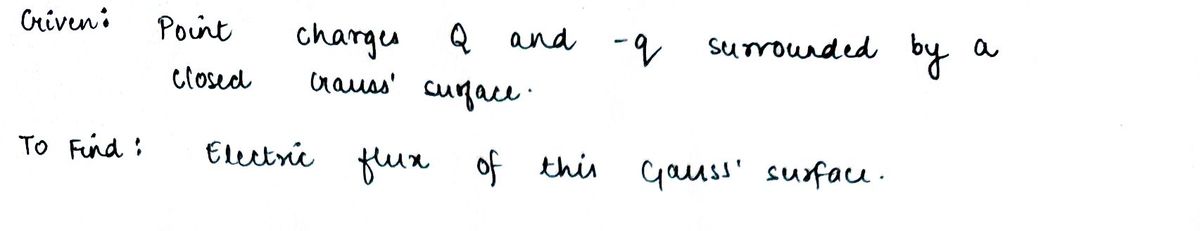 Given: Point charges Q and -q surrounded by a
closed Gauss' surface.
To Find: Electric flux of this Gauss' surface.